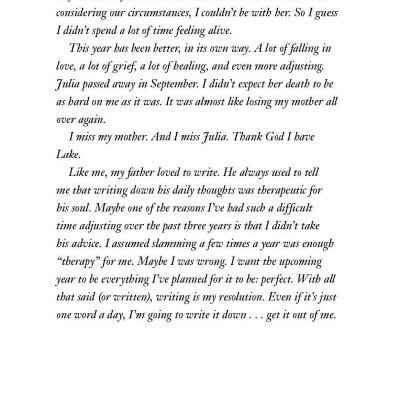 considering our circumstances, I couldn't be with her. So I guess
I didn't spend a lot of time feeling alive.
This year has been better, in its own way. A lot of falling in
love, a lot of grief, a lot of healing, and even more adjusting.
Julia passed away in September. I didn't expect her death to be
as hard on me as it was. It was almost like losing my mother all
over again.
I miss my mother. And I miss Julia. Thank God I have
Lake.
Like me, my father loved to write. He always used to tell
me that writing down his daily thoughts was therapeutic for
his soul. Maybe one of the reasons I've had such a difficult
time adjusting over the past three years is that I didn't take
his advice. I assumed slamming a few times a year was enough
“therapy” for me. Maybe I was wrong. I want the upcoming
year to be everything I've planned for it to be: perfect. With all
that said (or written), writing is my resolution. Even if it's just
one word a day, I'm going to write it down . . . get it out of me.